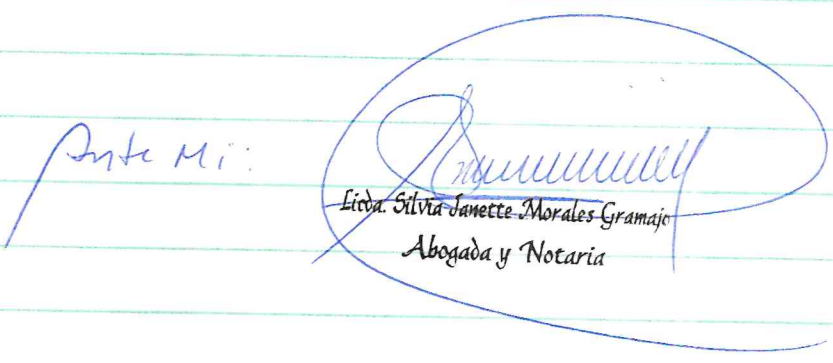 Ante Mi:
Licda. Silvia Janette Morales Gramajo
Abogada y Notaria